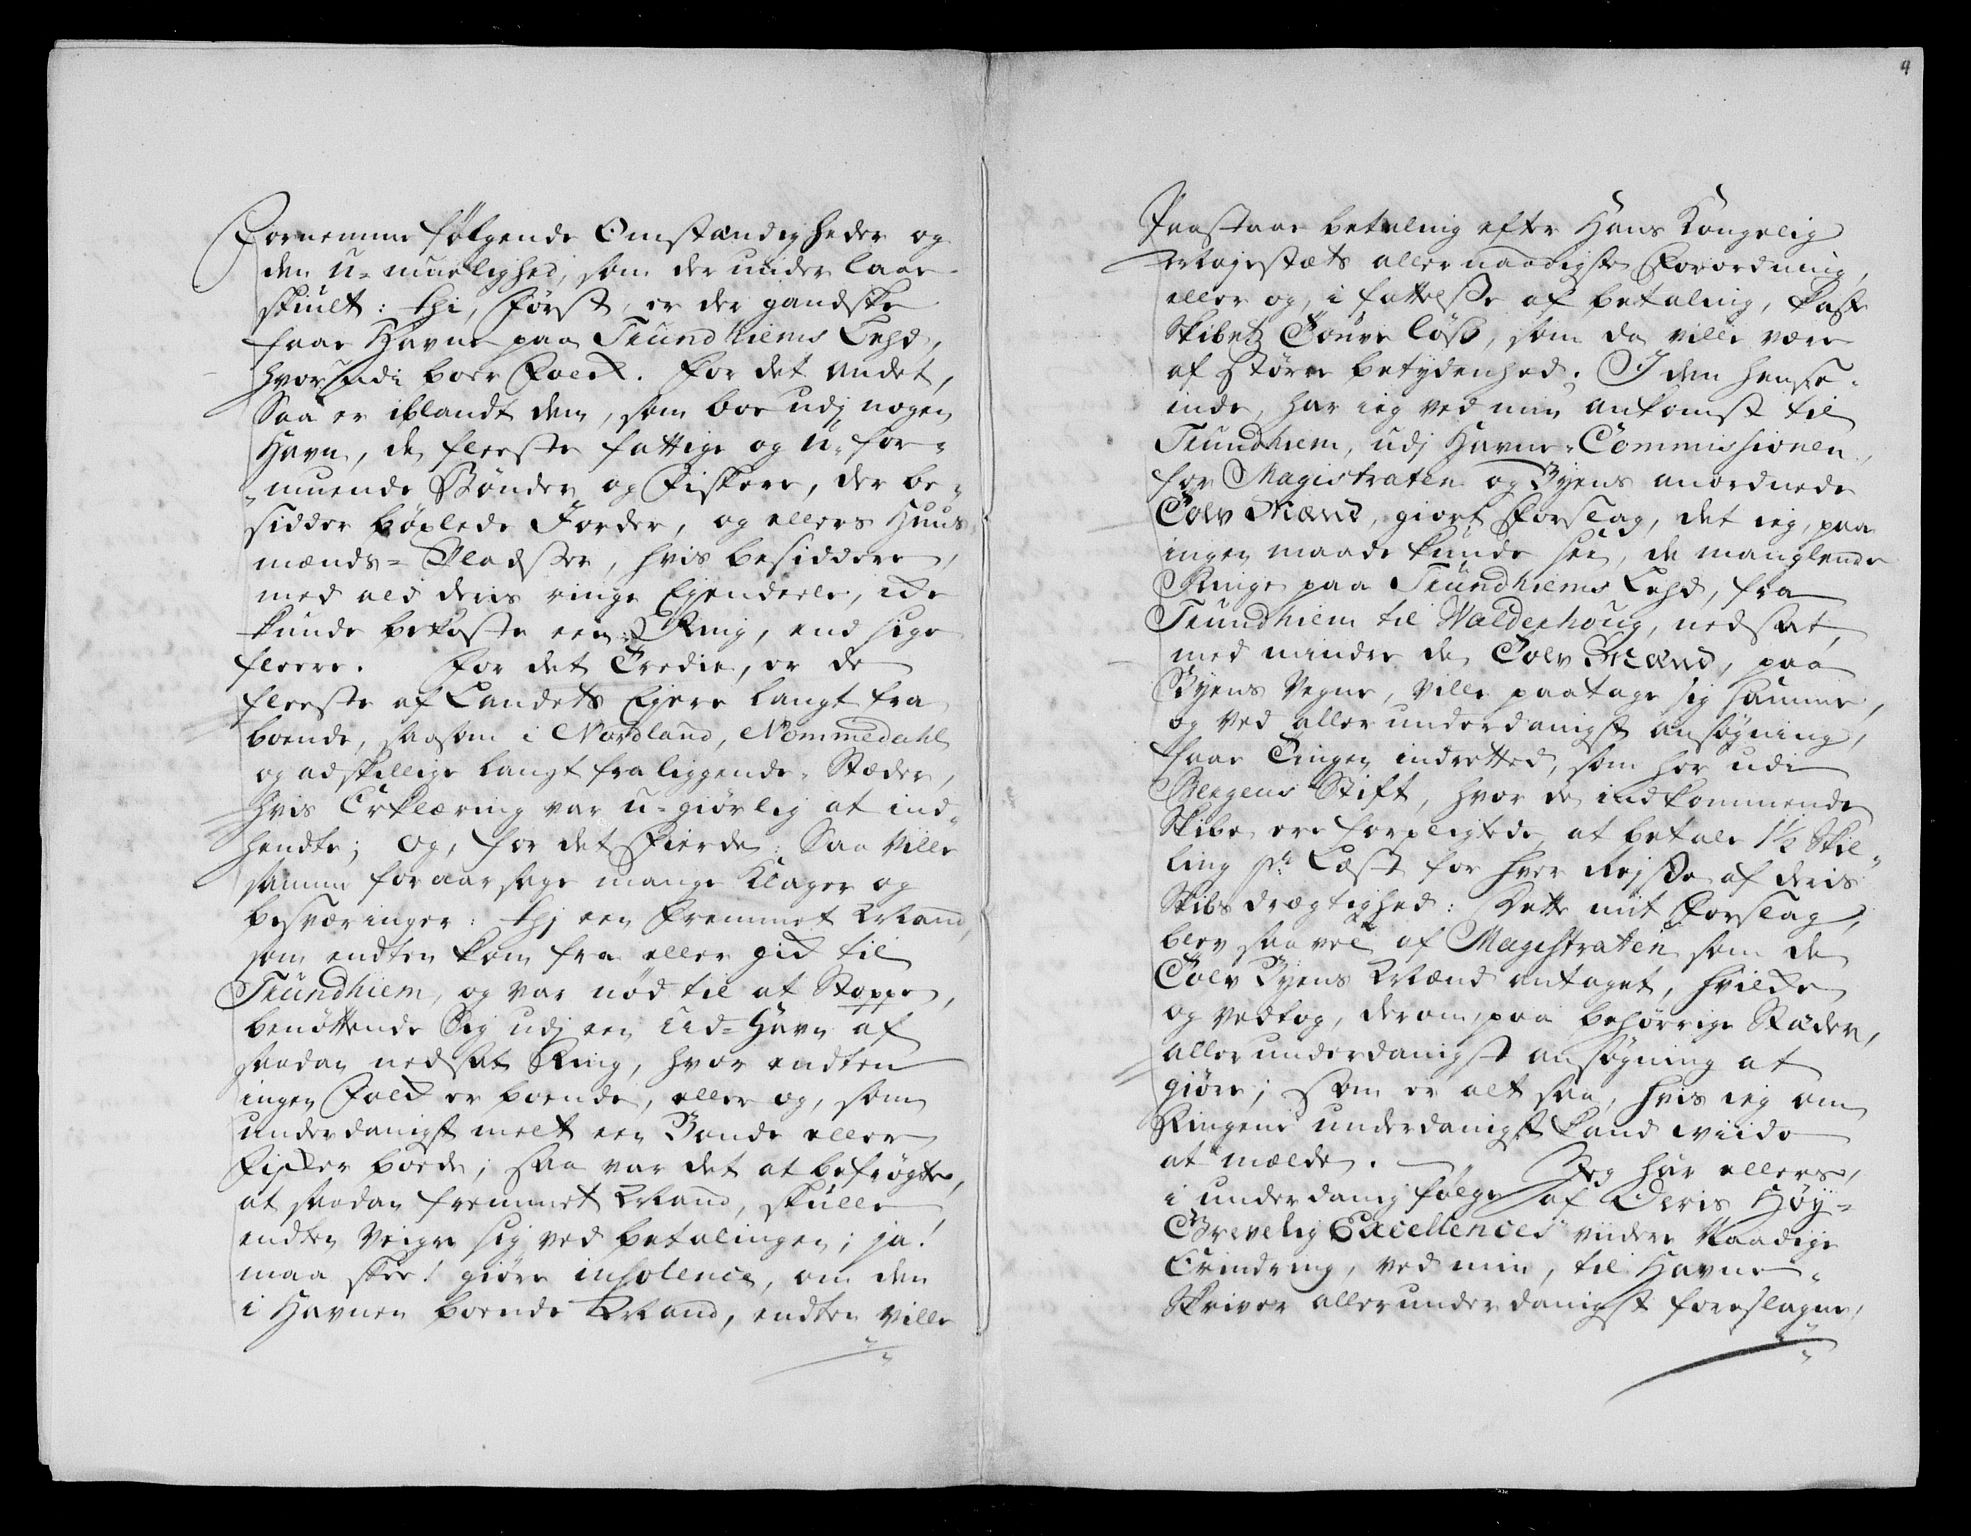 Fornemme følgende Omstændigheder og
den u-muelighed, som der under laae
skiult: thi, Først, er der gandske
faae Havne paa Trundhiems Lehd,
hvor udi boer Folck. For det andet,
Saa er iblandt dem, som boe udj nogen
Havn, de fleeste fattige og u-for-
-muende Bønder og Fiskere, der be-
sidderböxlede Jorder, og ellers Huus
mænds-Pladser, hvis besiddere,
med ald deris ringe Ejendeele, icke
kunde bekoste een Ring, end sige
fleere. For det Tredie, er de
fleeste af Landets Ejere langt fra
boende, saasom i Nordland, Nommedahl
og adskillige langt fra liggende Stæder,
hvis Erklæring var u-giørlig at ind-
hendte; og, for det Fierde: Saa ville
samme foraarsage mange Klager og
besværinger: thj een Fremmet Mand,
som endten kom fra eller gick til
Trundhiem, og var nød til at Stoppe,
benöttende Sig udj een Ud-Havn af
saadan nedsat Ring, hvor endten
ingen Folck er boende, eller og, som
underdanigst melt een Bonde eller
Fisker boede; saa var det at befrögte,
at saadan fremmet Mand, skulle
endten veigre sig ved betalingen; ja!
maa skee! giøre insolence, om den
i Havnen boende Mand, endten ville
Paastaae betaling efter Hans Kongelig
Majestæts allernaadigste Forordning,
eller og, i fattelse af betaling, kaste
Skibetz Touve löss, som da ville være
af større betydenhed; I den hense-
inde, har ieg ved min ankomst til
Trundhiem, udj Havne-Commissionen,
for Magistraten og Byens anordnede
Tolv Mænd, giort Forslag, det ieg, paa
ingen maade kunde see, de manglende
Ringe paa Trundhiems Lehd, fra
Trundhiem til Valderhoug, nedsat,
med mindre de Tolv Mænd, paa
Byens Vegne, ville paatage sig samme,
og ved allerunderdanigst ansøgning,
faae Tingen indretted, som her udi
Bergens Stift, hvor de indkommende
Skibe ere forpligtede at betale 1½ Skil-
ling pr Læst for hver Rejse af deris
Skibs drægtighed: Dette mit Forslag,
blev saa vel af Magistraten som de
Tolv Byens Mænd antaget, hvilcke
og vedtog, derom, paa behørrige Stæder,
allerunderdanigst ansøgning at
giøre; som er alt saa, hvis ieg om
Ringene underdanigst kand viide
at mælde. Jeg har ellers,
i underdanig følge af Deris Høy-
Grevelig Excellences viidere Naadige
Erindring, ved min, til Havne-
Skriver allerunderdanigst foreslagne,
4